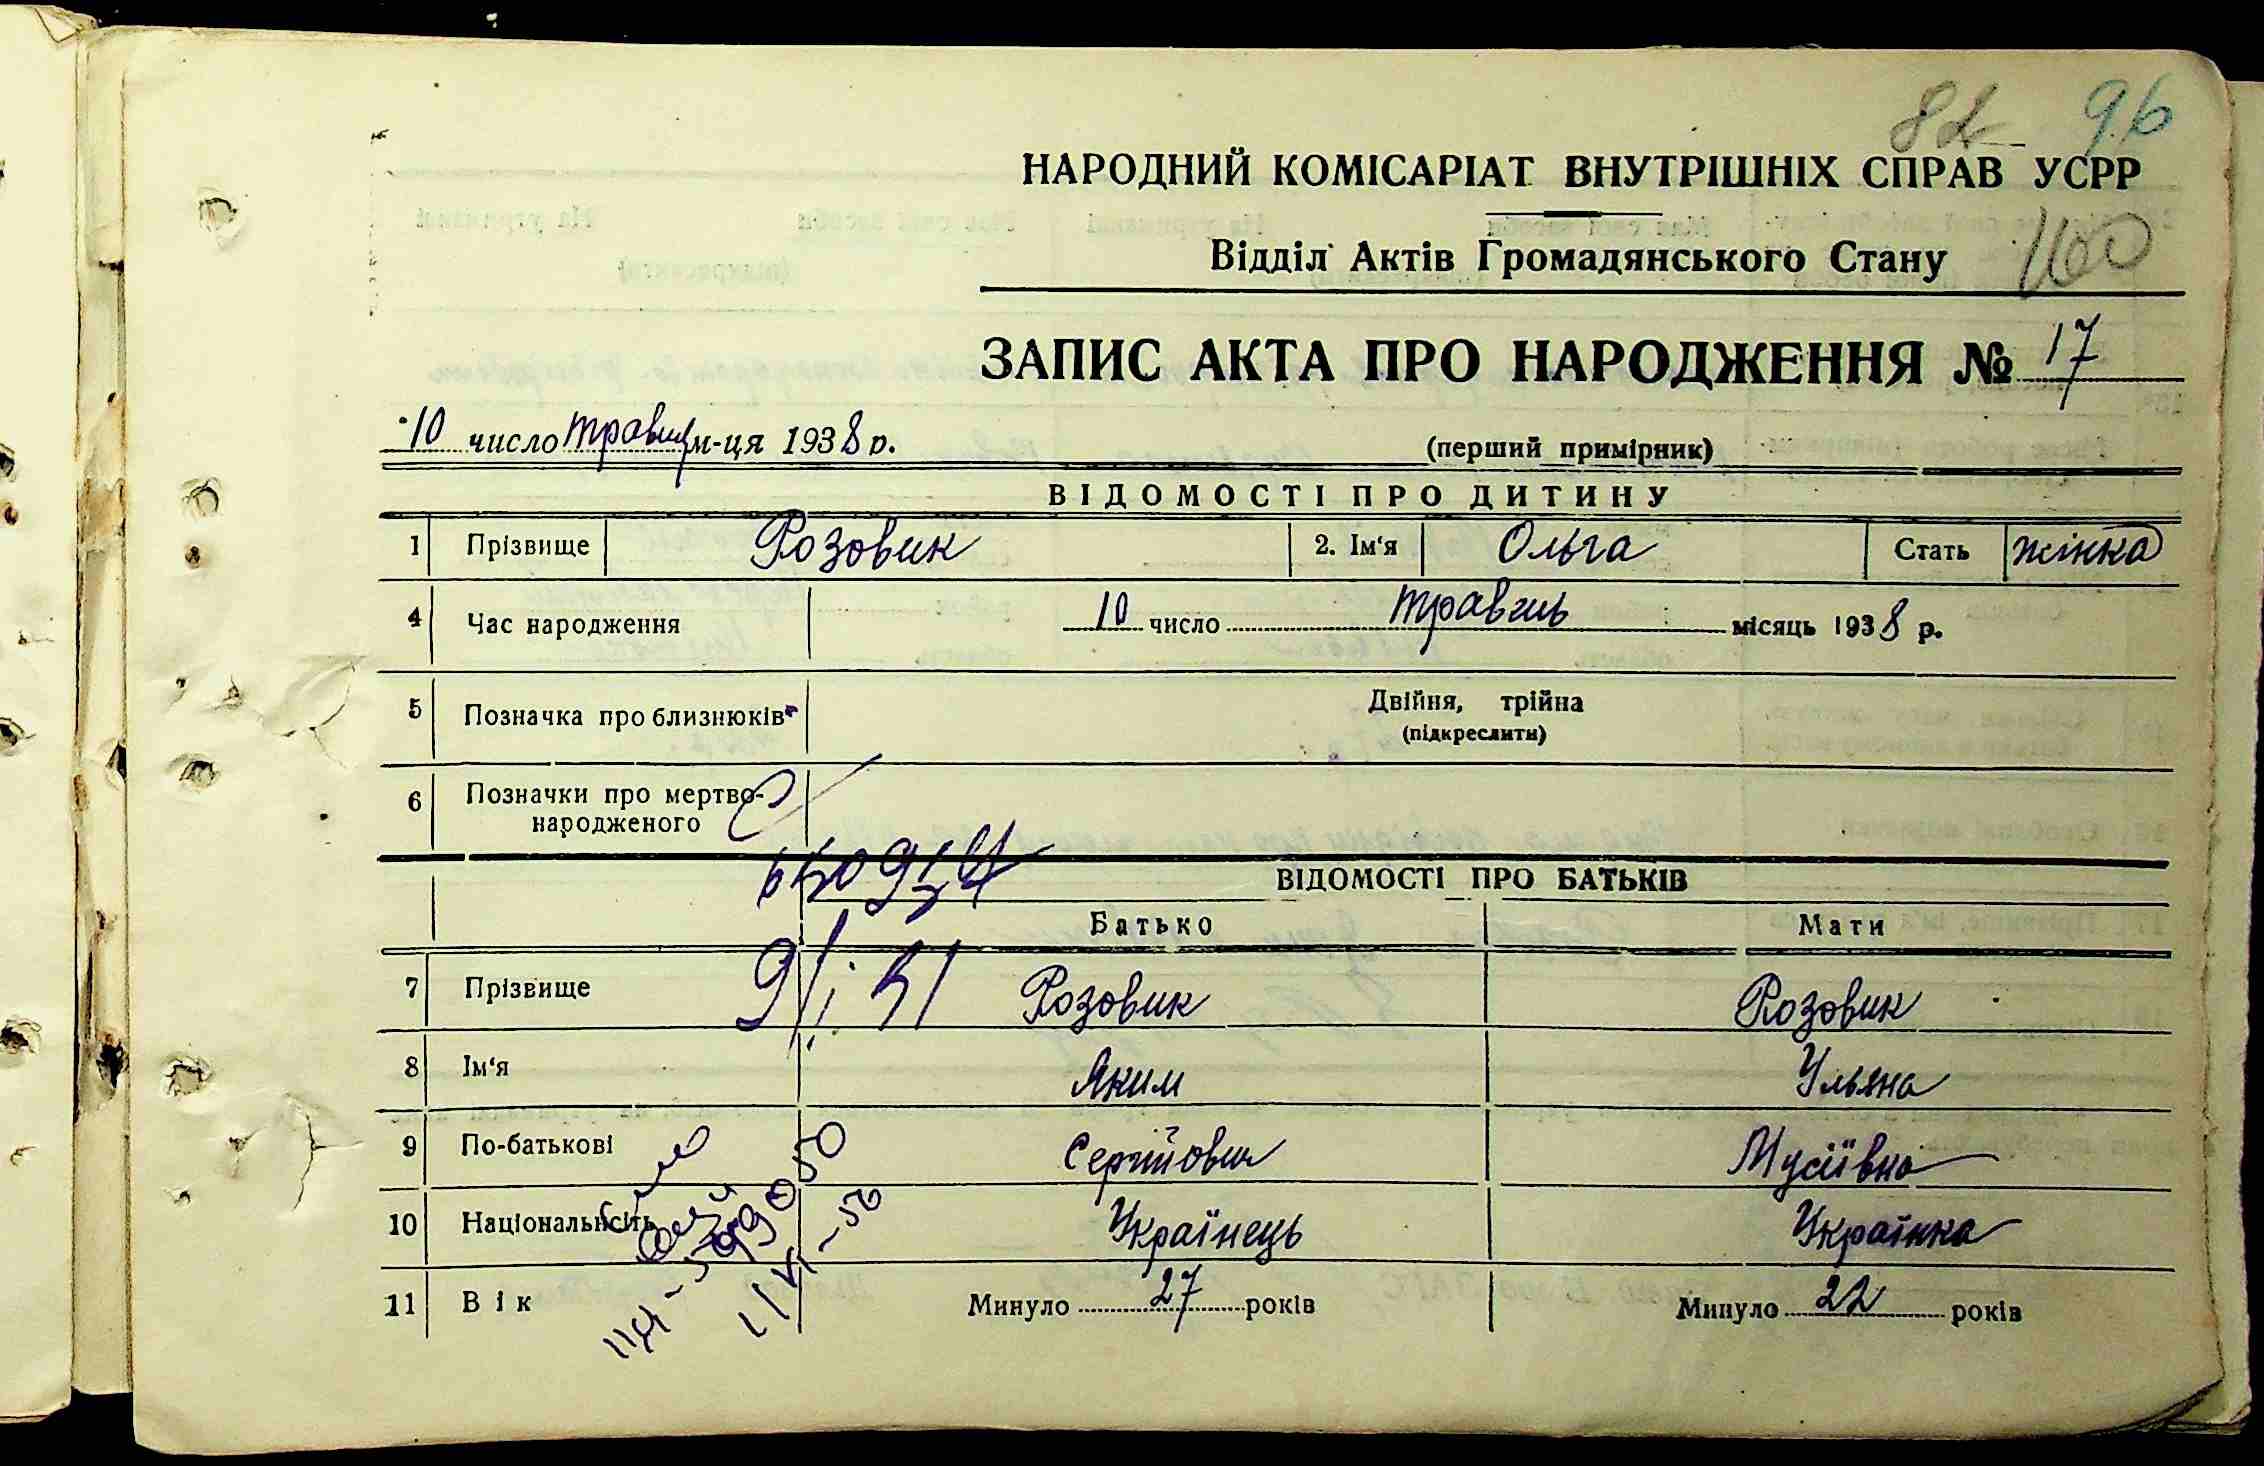 82 96
НАРОДНИЙ КОМІСАРІАТ ВНУТРІШНІХ СПРАВ УСРР
Відділ Актів Громадянського Стану 100
ЗАПИС АКТА ПРО НАРОДЖЕННЯ № 17
10 число травня м-ця 1938 р. (перший примірник)
ВІДОМОСТІ ПРО ДИТИНУ
1 Прізвище Розовик 2. Ім'я Ольга Стать жінка
4 Час народження 10 число травень місяць 1938 р.
5 Позначка про близнюків Двійня, трійна
(підкреслити)
6 Позначки про мертво-
народженого
ВІДОМОСТІ ПРО БАТЬКІВ
Батько Мати
7 Прізвище Розовик Розовик
8 Ім'я Яким Ульяна
9 По-батькові Сергійович Мусіївна
10 Національнсіть Українець Українка
11 Вік Минуло 27 років Минуло 22 років